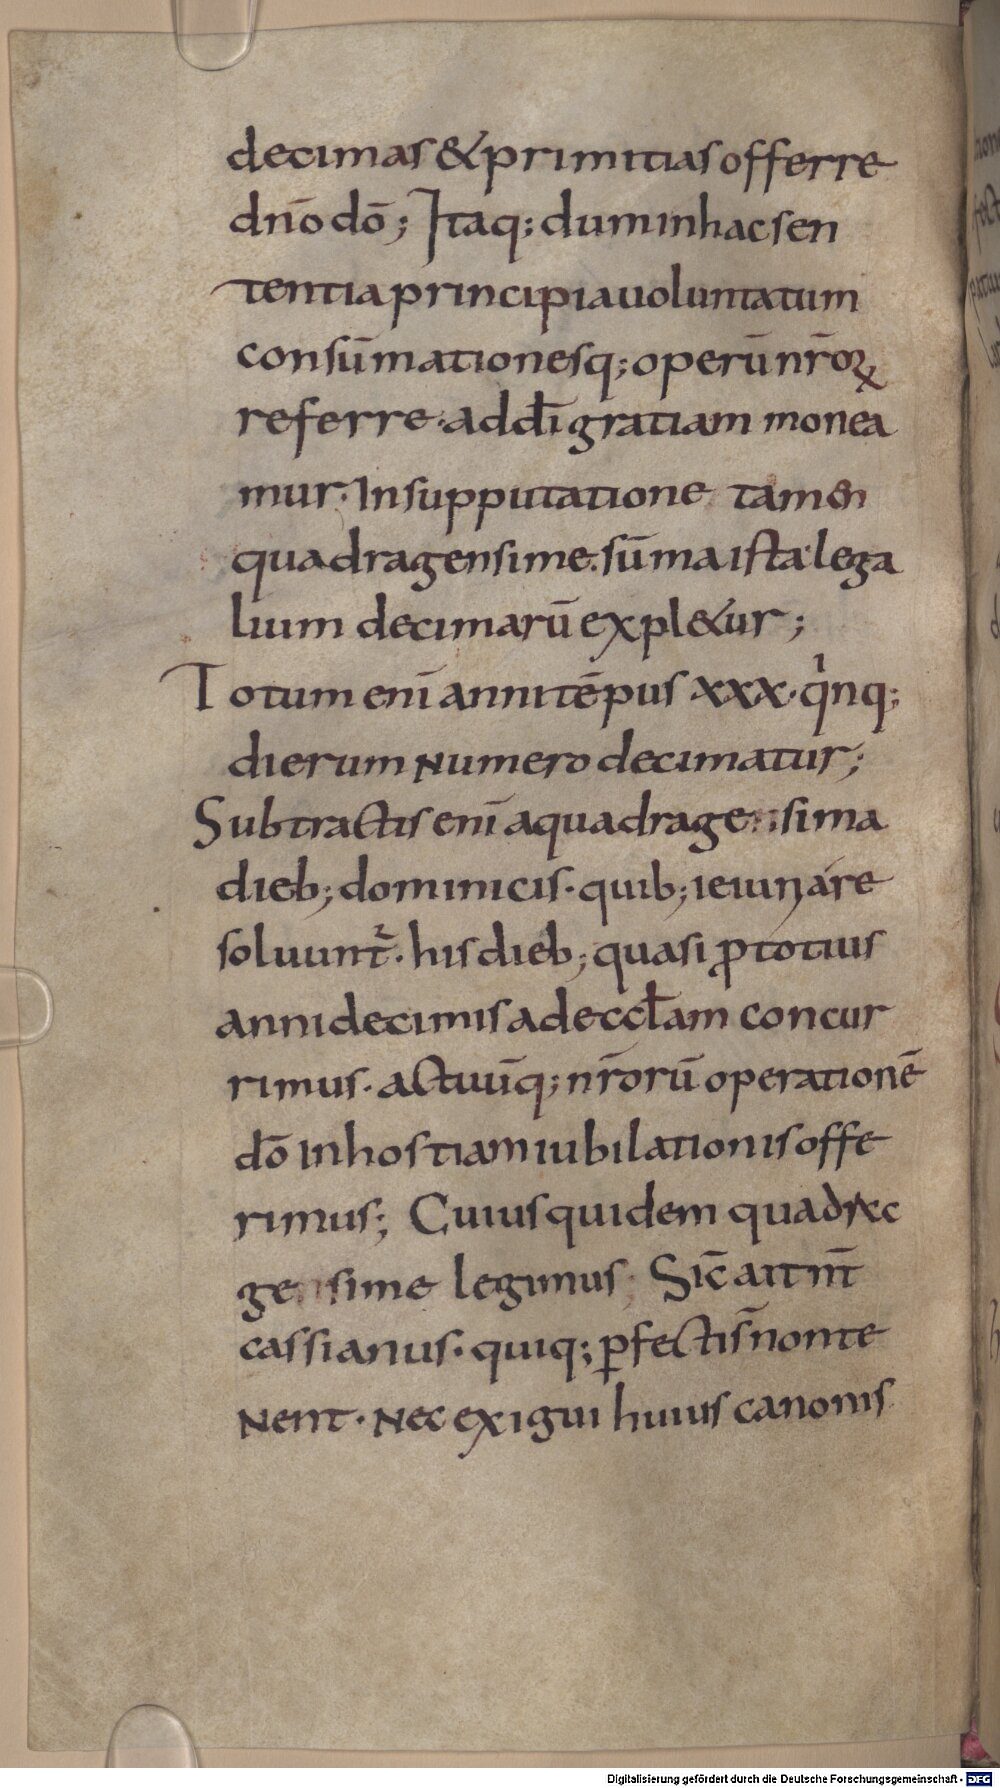 decimas & primitias offerre
dn̄o dō; Itaq; dum in hac sen
tentia principia uoluntatum
consūmationesq; operū nr̄oꝝ
referre. ad dī gratiam monea
mur. In supputatione tamen
quadragensime. sūma ista lega
lium decimarū expl&ur;
Totum enī anni tēpus xxx. qinq;
dierum numero decimatur;
Subtractis enī a quadragensima
dieb; dominicis. quib; ieiunare
soluunt̄. his dieb; quasi ꝓ totius
anni decimis ad eccłam concur
rimus. actuūq; nr̄orū operationē
dō in hostiam iubilationis offe
rimus; Cuius quidem quadra
gensime legimus; Sic̄ ait nt̄
cassianus. quiq; ꝑfectis n̄ non te
nent. nec exigui huius canonis
Digitalisierung gefördert durch die Deutsche Forschungsgemeinschaft - DFG